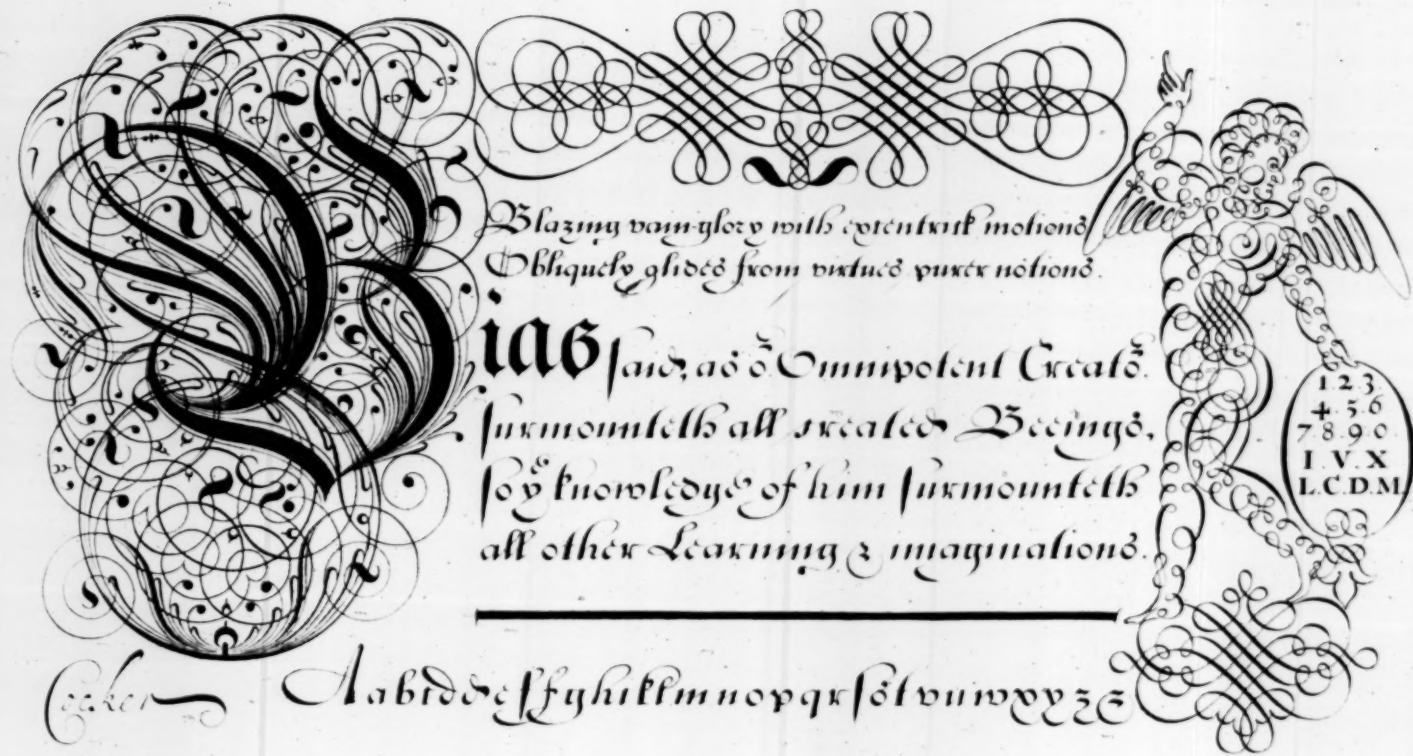 Blazing vain-glory with exentrick motions
Obliquely glides from virtues purer notions.
Bias said, as ye Omnipotent Creator
surmounteth all created Beeings,
so ye knowledge of him surmounteth
all other Learning & imaginations.
1.2.3.
4.5.6
7.8.9.0.
I.V.X
L.C.D.M
Cocker
A a b c d d e f f g h i k l m n o p q r s s t v u w x y z